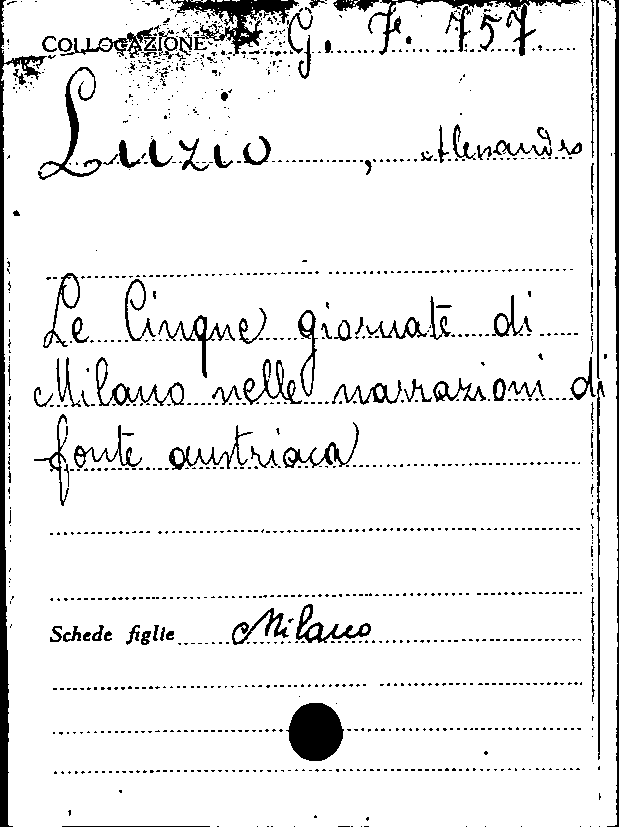 COLLOCAZIONE G. F. 757
Luzio, Alessandro
Le Cinque giornate di
Milano nelle narrazioni di
fonte austriaca
Schede figlie Milano